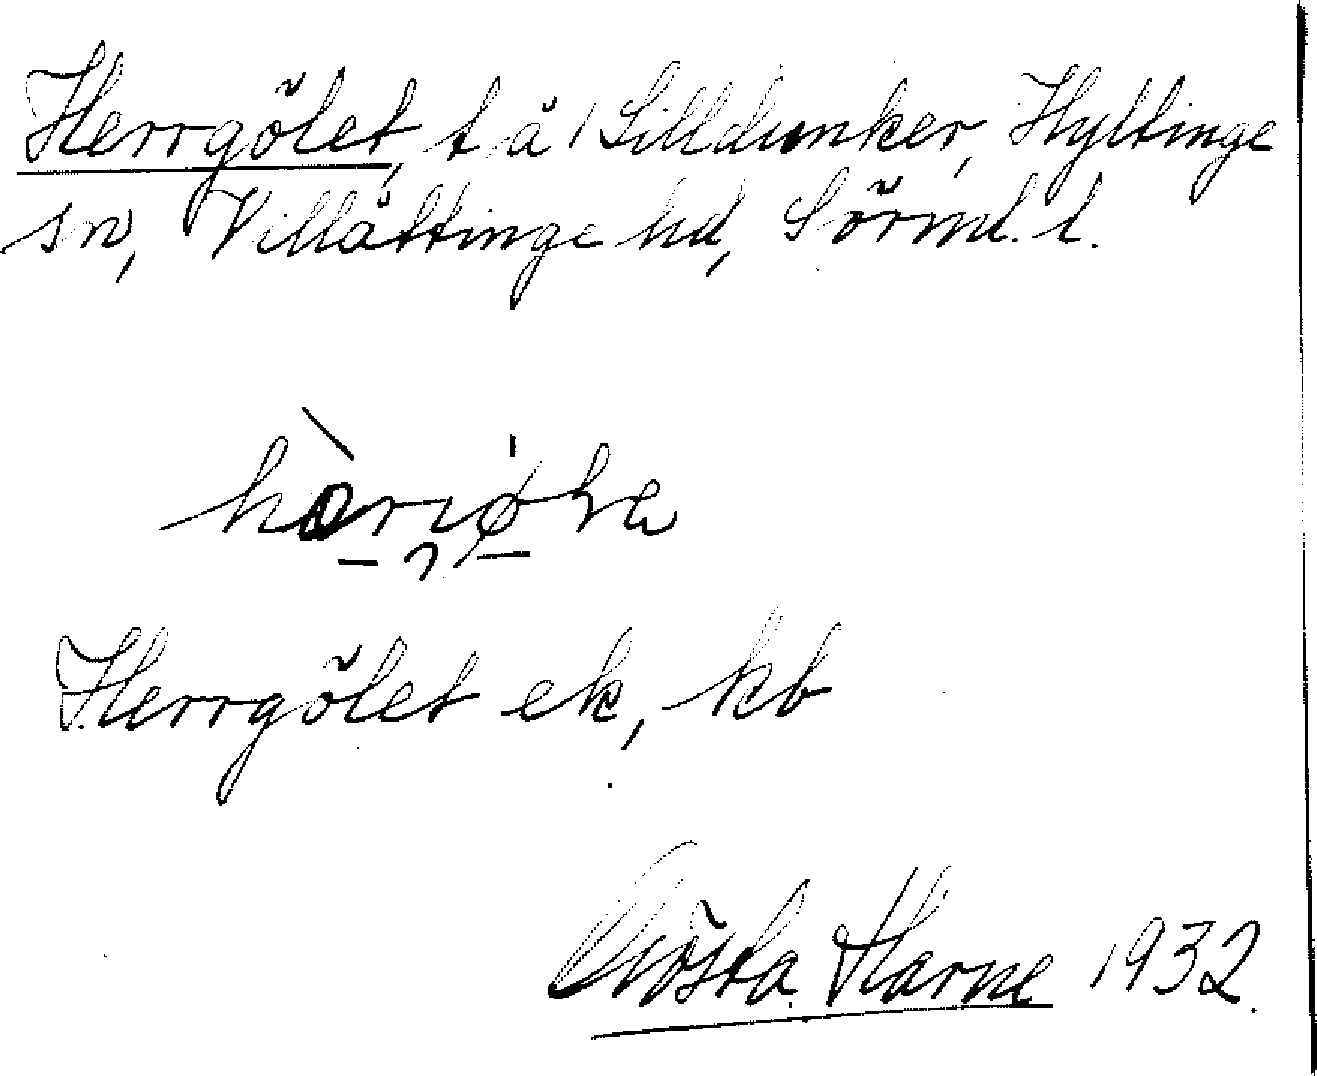 Herrgölet, t å Lilldunker, Hyltinge
sn, Villåttinge hd, Sörml. l.
Herrgölet ek, kb
Gösta Harne 1932.